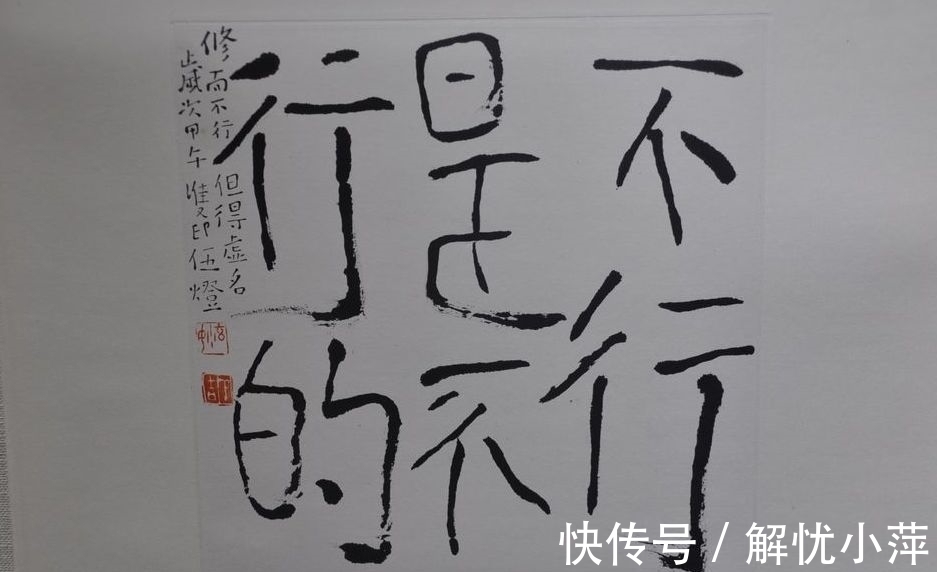 不行
是不
行的
修而不行但得虚名
止戒次甲午
伍燈
快传号 / 解忧小萍